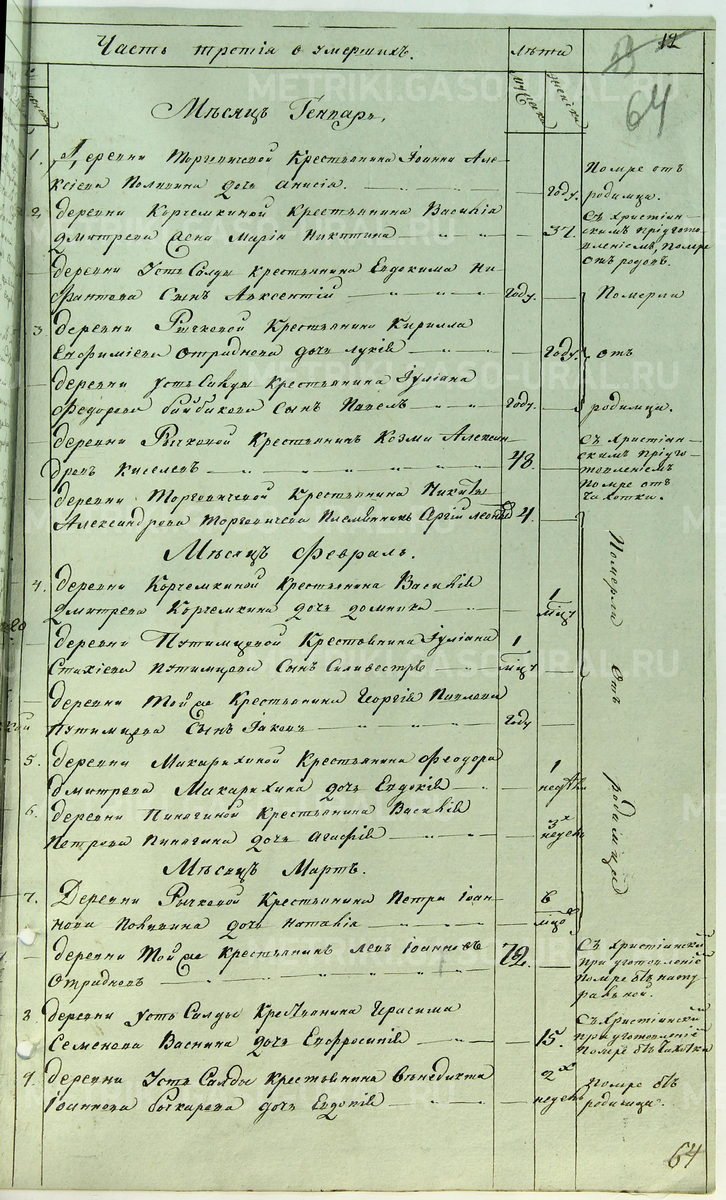 12
64
Часть третія о умершихъ.
лѣта
мужеска
женска
Мѣсяцъ Генварь.
1. Деревни Торговичевой Крестьянина Іоанна Але-
ксіева Полянина дочь Анисія. году.
Помре отъ
родимца.
2. деревни Корчемкиной крестьянина Василія
Дмитрева жена Марія Никитина 37.
Съ христіан-
скимъ пріугото-
вленіемъ, помре
отъ родовъ.
деревни Усть Салды крестьянина Евдокима Ни-
фантова Сынъ Авксентій году.
Померли
3 деревни Рычковой Крестьянина Кирилла
Евфиміева Отраднова дочь Лукія году.
отъ
деревни Усть Салды крестьянина Іуліана
Федорова сынъ Павелъ году.
родимца.
деревни Рычковой Крестьянинъ Козма Алексан
дровъ Киселевъ 48.
Съ Христіан-
скимъ пріуго-
товленіемъ
помре отъ
чахотки.
деревни Торговичевой Крестьянина Никиты
Александрова Торговичева Племянникъ Сергій 4.
Мѣсяцъ Февраль.
4. деревни Корчемкиной Крестьянина Василія
Дмитрева Корчемкина дочь Домника 1 мѣсц
Померли отъ родимца
деревни Путимцевой Крестьянина Іуліана
Стахіева Путимцева Сынъ Силивестръ 1 мѣсц
деревни Той же Крестьянина Георгія Павлова
Путимцева Сынъ Іаковъ году
5. деревни Макарихиной Крестьянина Феодора
Дмитрева Макарихина дочь Евдокія 1 недѣл.
6. деревни Пинягиной Крестьянина Василія
Петрова Пинягина дочь Агафія 3х недель
Мѣсяцъ Мартъ.
7. Деревни Рычковой Крестьянина Петра Іоан-
нова дочь Наталія 6 мѣсц
деревни Той же крестьянинъ Левъ Іоанновъ
Отрадновъ 72.
Съ христіански
при уготовленіе
помре отъ нату
ральной.
8 деревни Усть Салды Крестьянина Герасима
Семенова Васнина дочь Евфросинія 15.
Съ Христіанской
при уготовленіе
помре отъ чахотки
9. деревни Усть Салды крестьянина Венедикта
Іоаннова Бочкарева дочь Евдокія 2х недель
помре отъ
родимца.
64
METRIKI.GASO-URAL.RU
METRIKI.GASO-URAL.RU
METRIKI.GASO-URAL.RU